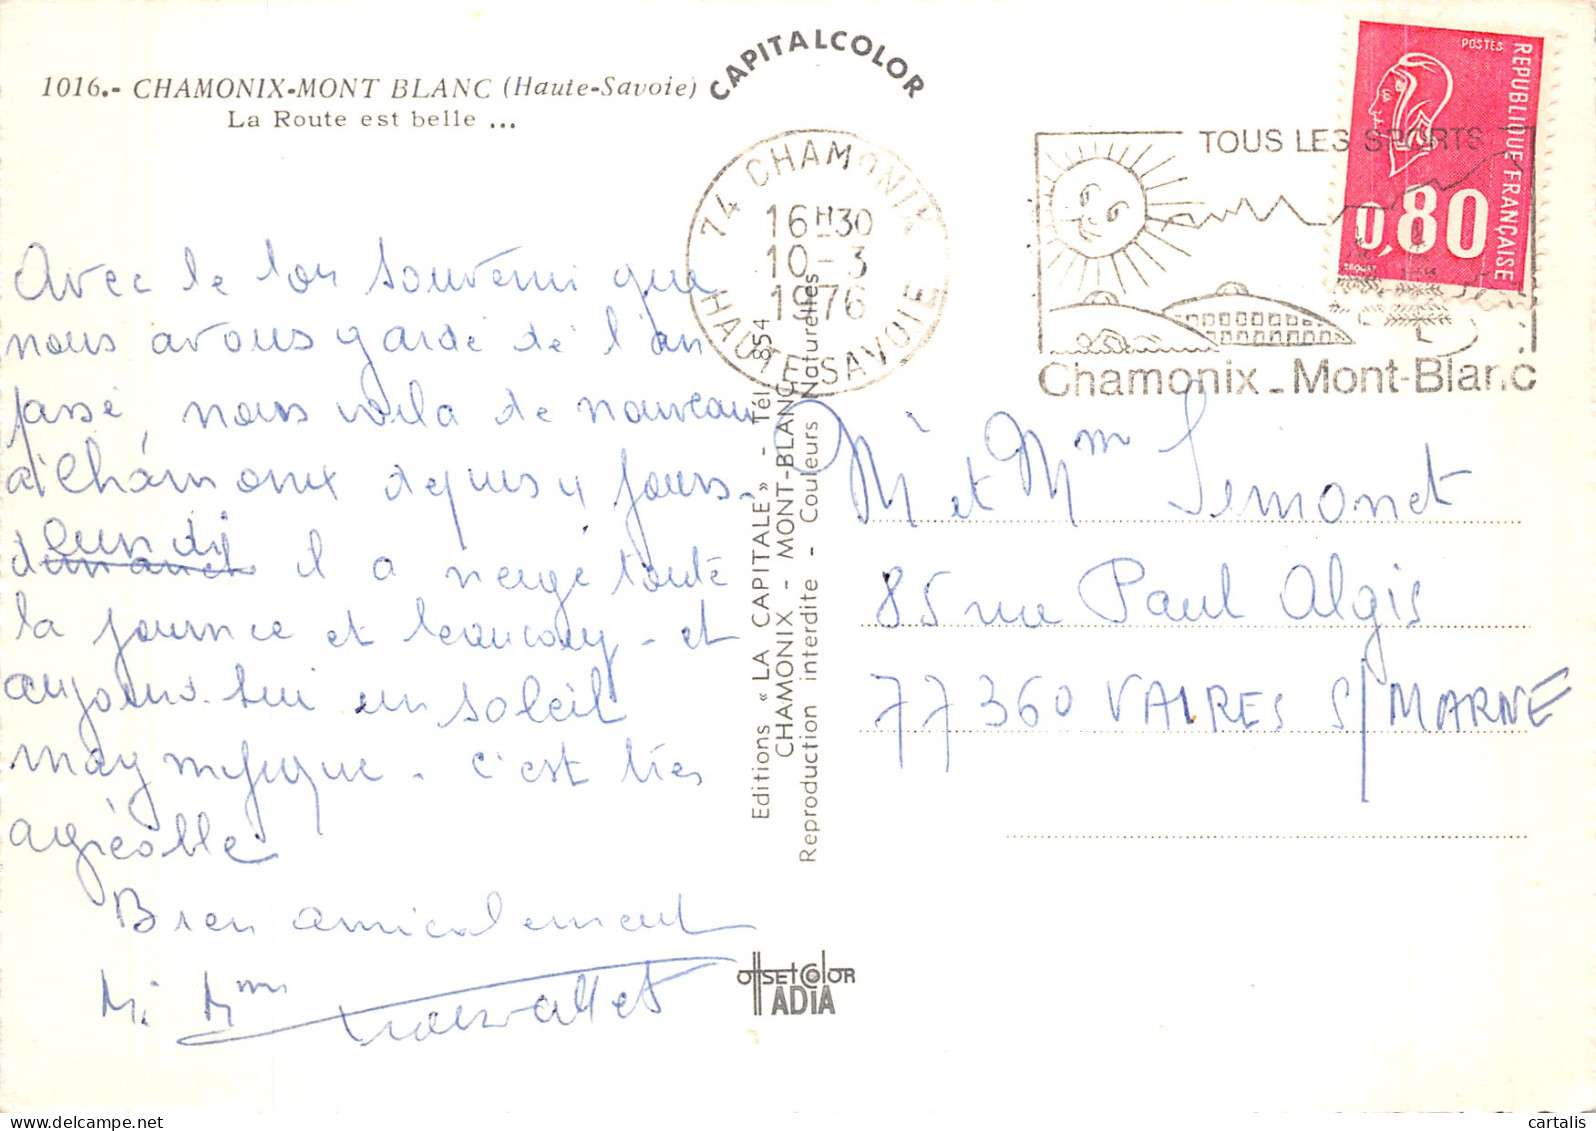 1016.- CHAMONIX-MONT BLANC (Haute-Savoie)
La Route est belle ...
CAPITALCOLOR
74 CHAMONIX
16H30
10-3
1976
HAUTE-SAVOIE
TOUS LES SPORTS
Chamonix - Mont-Blanc
POSTES
REPUBLIQUE FRANÇAISE
0,80
Avec le bon souvenir que
nous avons gardé de l'an
passé, nous voila de nouveau
à Chamonix depuis 4 jours-
lundi
dimanch il a neigé toute
la journée et beaucoup - et
aujourd'hui un soleil
magnifique - c'est très
agréable
Bien amicalement
M. Mme
Editions « LA CAPITALE » - Tél. 854
CHAMONIX - MONT-BLANC
Reproduction interdite - Couleurs Naturelles
M et Mme Simonet
85 rue Paul Algis
77360 VAIRES S/MARNE
OFFSET COLOR
ADIA
cartalis delcampe.net